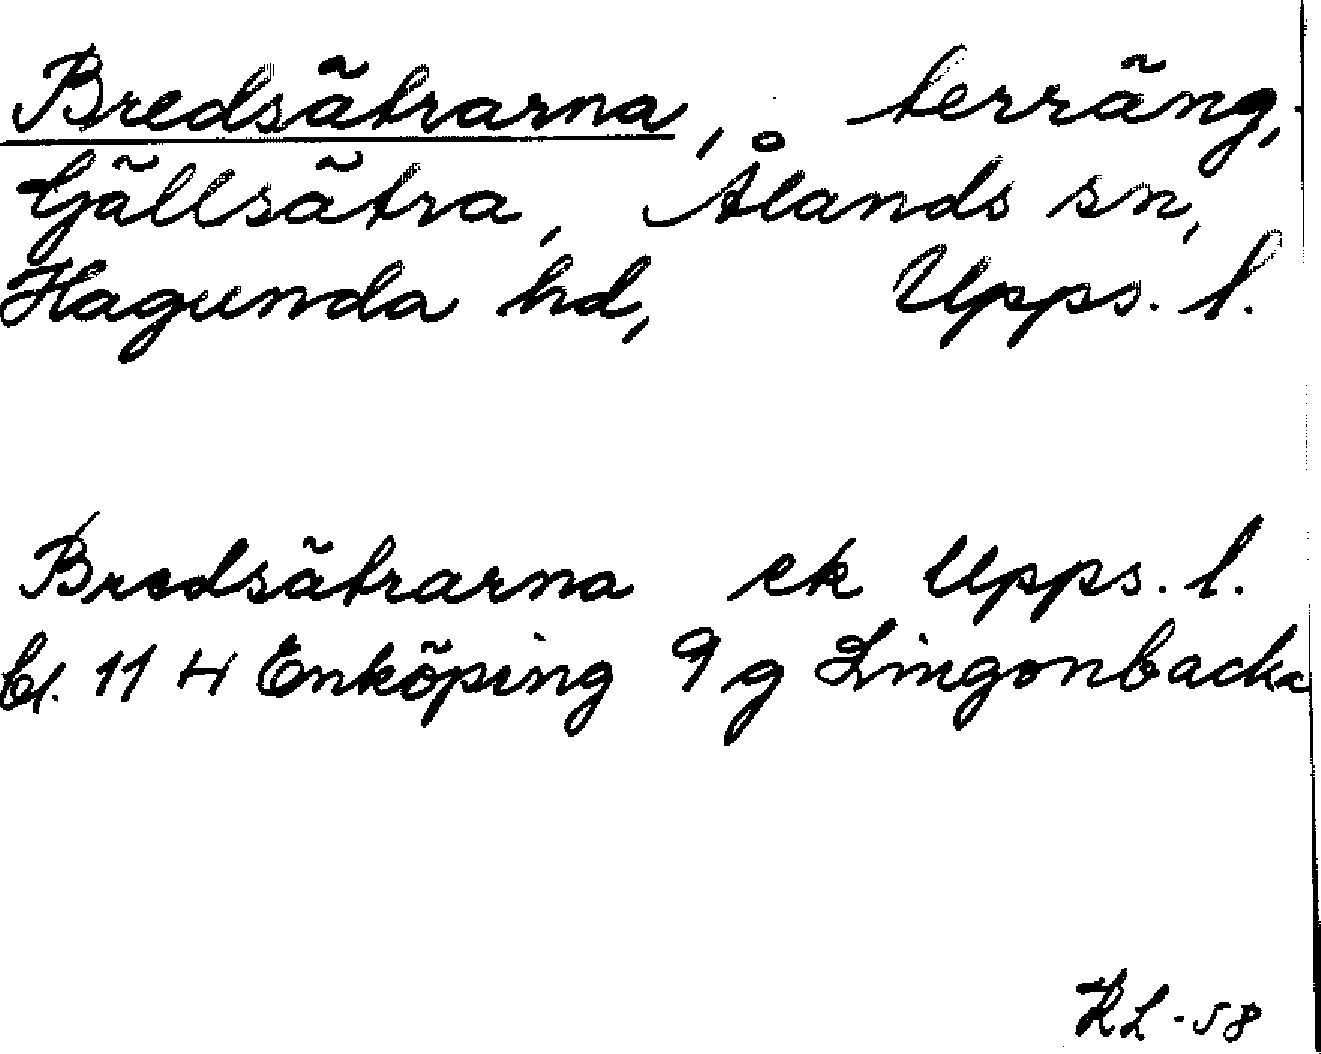 Bredsätrarna, terräng,
Gällsätra, Ålands sn,
Hagunda hd, Upps. l.
Bredsätrarna ek Upps. l.
bl. 11 H Enköping 9 g Lingonbacka
KL-58